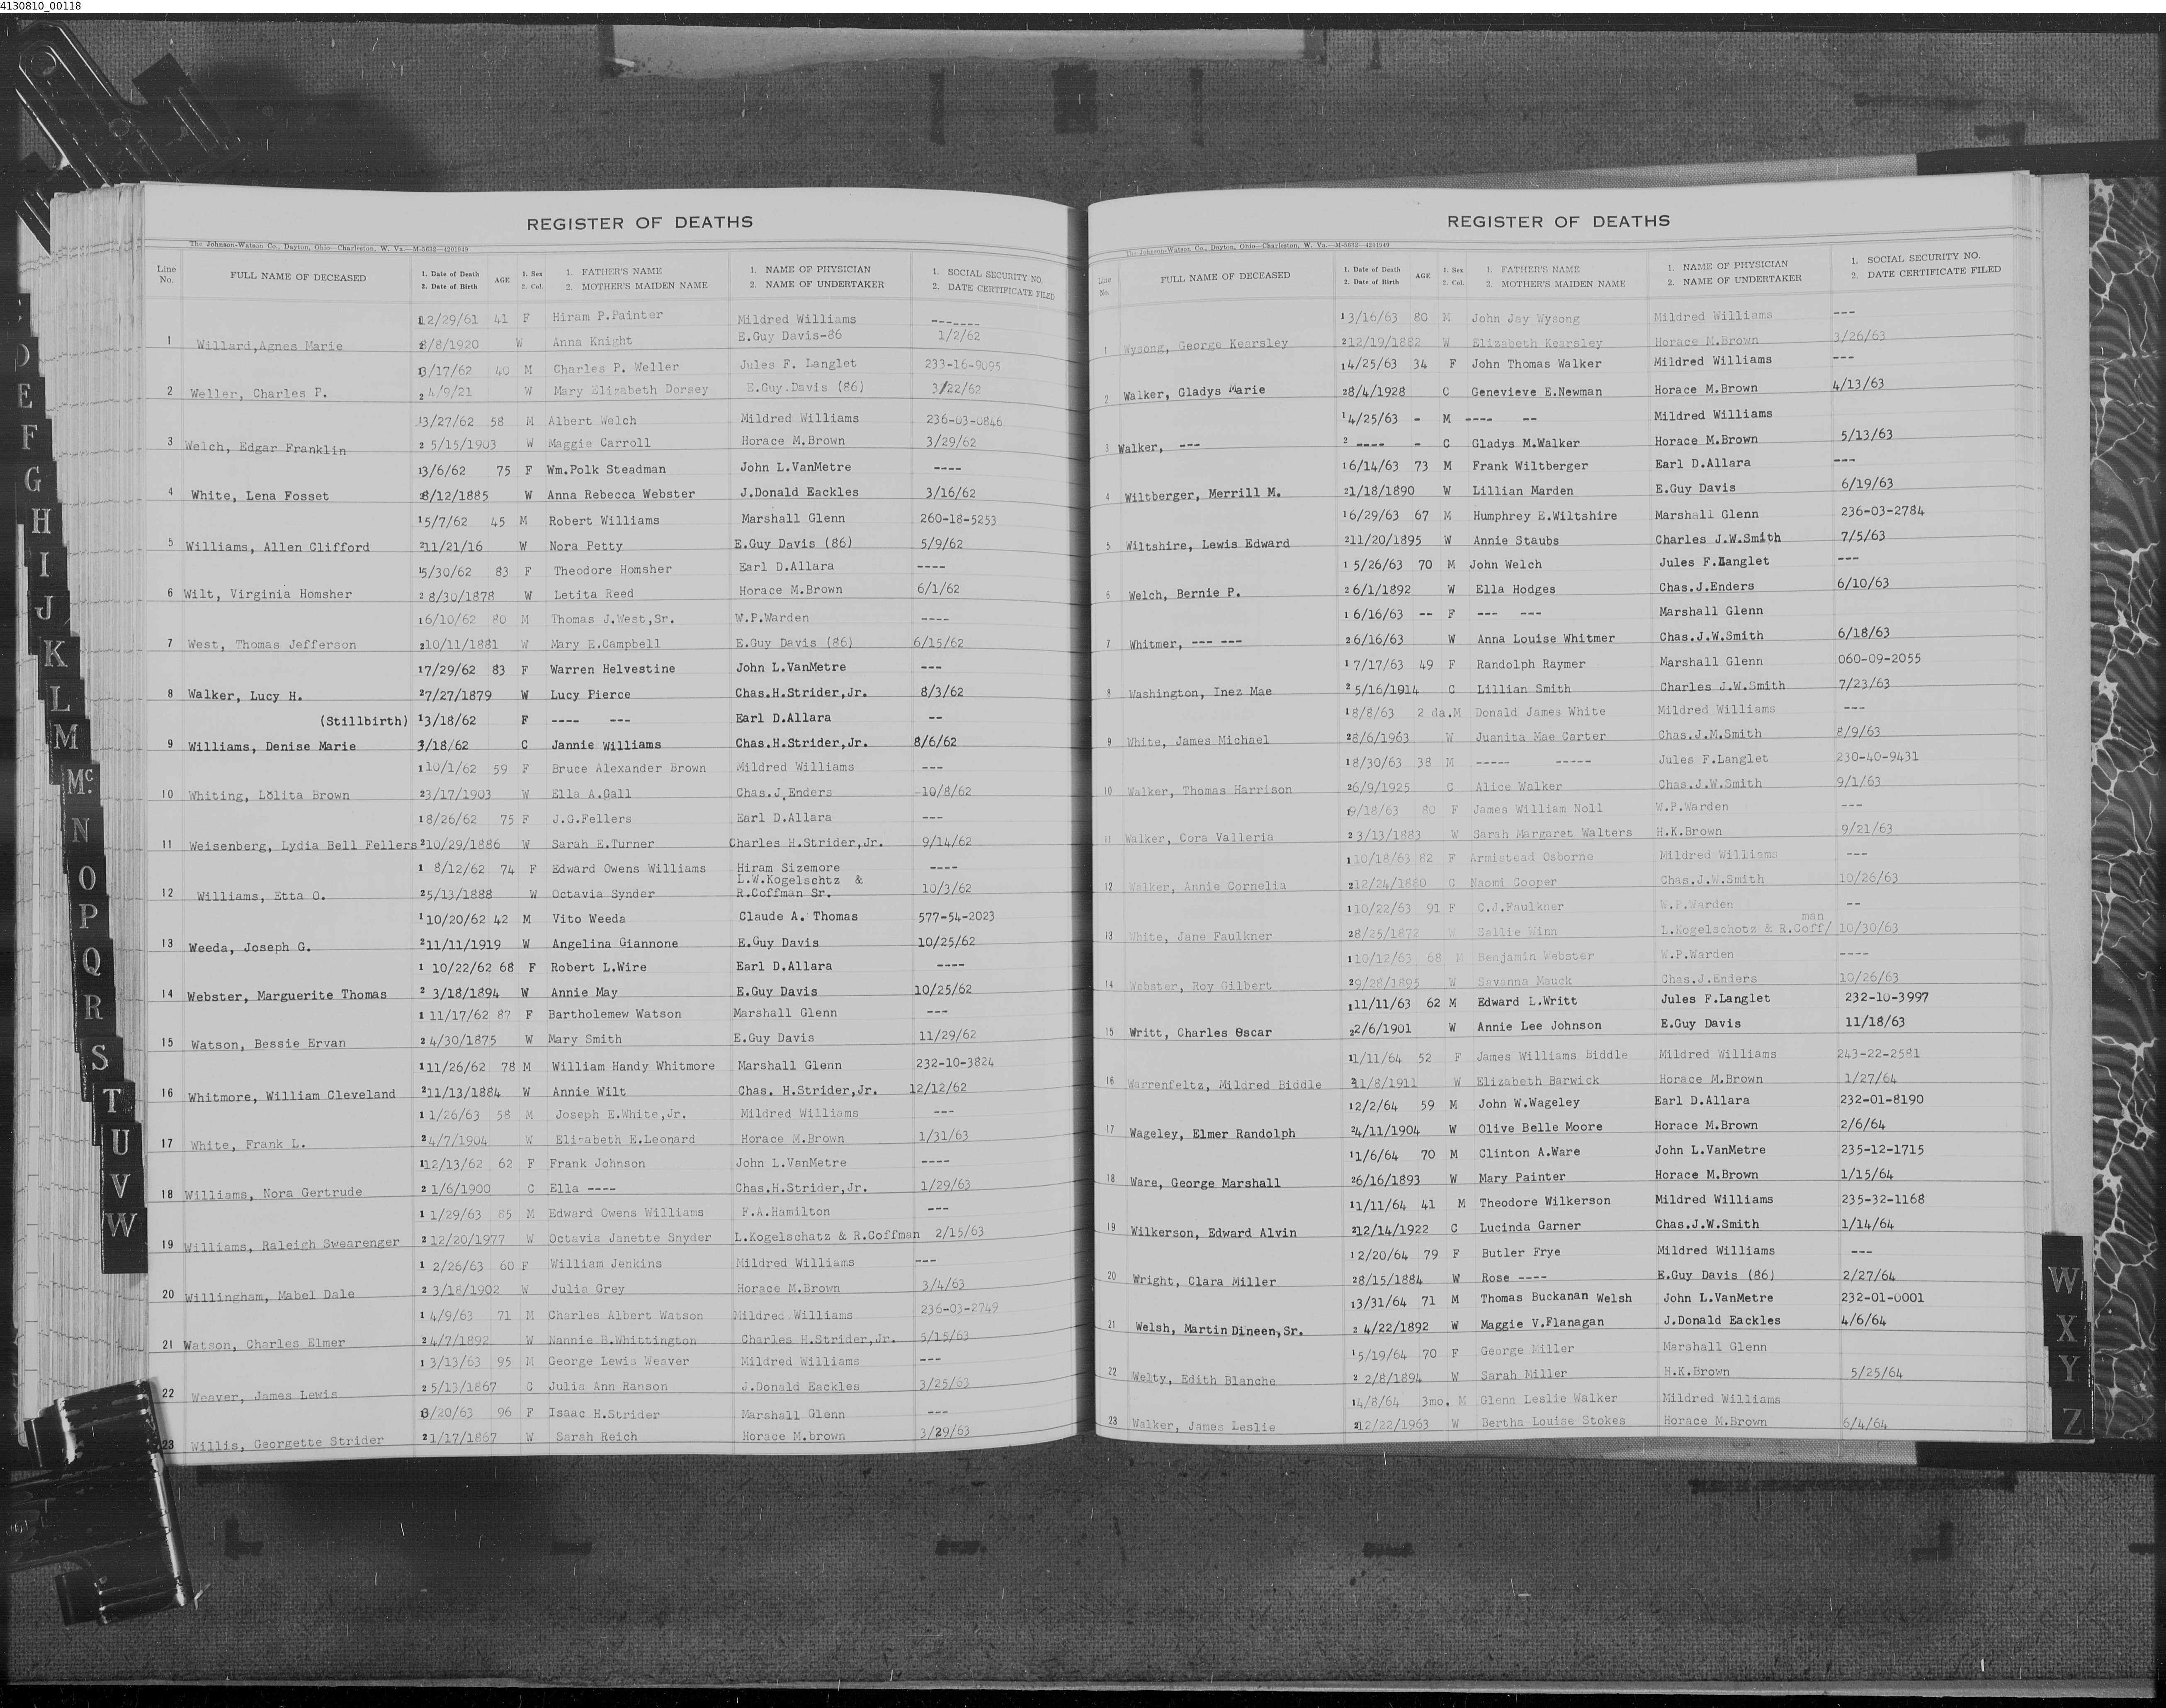 4130810_00118
REGISTER OF DEATHS
The Johnson-Watson Co., Dayton, Ohio—Charleston, W. Va.—M-5632—4201949
Line No. FULL NAME OF DECEASED 1. Date of Death 2. Date of Birth AGE 1. Sex 2. Col. 1. FATHER'S NAME 2. MOTHER'S MAIDEN NAME 1. NAME OF PHYSICIAN 2. NAME OF UNDERTAKER 1. SOCIAL SECURITY NO. 2. DATE CERTIFICATE FILED
12/29/61 41 F Hiram P.Painter Mildred Williams -------
1 Willard,Agnes Marie 8/8/1920 W Anna Knight E.Guy Davis-86 1/2/62
3/17/62 40 M Charles P. Weller Jules F. Langlet 233-16-9095
2 Weller, Charles P. 2 4/9/21 W Mary Elizabeth Dorsey E.Guy.Davis (86) 3/22/62
3/27/62 58 M Albert Welch Mildred Williams 236-03-0846
3 Welch, Edgar Franklin 2 5/15/1903 W Maggie Carroll Horace M.Brown 3/29/62
3/6/62 75 F Wm.Polk Steadman John L.VanMetre ----
4 White, Lena Fosset 8/12/1885 W Anna Rebecca Webster J.Donald Eackles 3/16/62
1 5/7/62 45 M Robert Williams Marshall Glenn 260-18-5253
5 Williams, Allen Clifford 2 11/21/16 W Nora Petty E.Guy Davis (86) 5/9/62
5/30/62 83 F Theodore Homsher Earl D.Allara ----
6 Wilt, Virginia Homsher 2 8/30/1878 W Letita Reed Horace M.Brown 6/1/62
1 6/10/62 80 M Thomas J.West,Sr. W.P.Warden ----
7 West, Thomas Jefferson 2 10/11/1881 W Mary E.Campbell E.Guy Davis (86) 6/15/62
1 7/29/62 83 F Warren Helvestine John L.VanMetre ---
8 Walker, Lucy H. 2 7/27/1879 W Lucy Pierce Chas.H.Strider,Jr. 8/3/62
(Stillbirth) 1 3/18/62 F ---- --- Earl D.Allara --
9 Williams, Denise Marie 3/18/62 C Jannie Williams Chas.H.Strider,Jr. 8/6/62
1 10/1/62 59 F Bruce Alexander Brown Mildred Williams ---
10 Whiting, Lolita Brown 2 3/17/1903 W Ella A.Gall Chas.J.Enders 10/8/62
1 8/26/62 75 F J.G.Fellers Earl D.Allara ---
11 Weisenberg, Lydia Bell Fellers 2 10/29/1886 W Sarah E.Turner Charles H.Strider,Jr. 9/14/62
1 8/12/62 74 F Edward Owens Williams Hiram Sizemore ----
L.W.Kogelschtz &
12 Williams, Etta O. 2 5/13/1888 W Octavia Synder R.Coffman Sr. 10/3/62
1 10/20/62 42 M Vito Weeda Claude A. Thomas 577-54-2023
13 Weeda, Joseph G. 2 11/11/1919 W Angelina Giannone E.Guy Davis 10/25/62
1 10/22/62 68 F Robert L.Wire Earl D.Allara ----
14 Webster, Marguerite Thomas 2 3/18/1894 W Annie May E.Guy Davis 10/25/62
1 11/17/62 87 F Bartholemew Watson Marshall Glenn ---
15 Watson, Bessie Ervan 2 4/30/1875 W Mary Smith E.Guy Davis 11/29/62
1 11/26/62 78 M William Handy Whitmore Marshall Glenn 232-10-3824
16 Whitmore, William Cleveland 2 11/13/1884 W Annie Wilt Chas. H.Strider,Jr. 12/12/62
1 1/26/63 58 M Joseph E.White,Jr. Mildred Williams ---
17 White, Frank L. 2 4/7/1904 W Elizabeth E.Leonard Horace M.Brown 1/31/63
1 12/13/62 62 F Frank Johnson John L.VanMetre ----
18 Williams, Nora Gertrude 2 1/6/1900 C Ella ---- Chas.H.Strider,Jr. 1/29/63
1 1/29/63 85 M Edward Owens Williams F.A.Hamilton ---
19 Williams, Raleigh Swearenger 2 12/20/1977 W Octavia Janette Snyder L.Kogelschatz & R.Coffman 2/15/63
1 2/26/63 60 F William Jenkins Mildred Williams ---
20 Willingham, Mabel Dale 2 3/18/1902 W Julia Grey Horace M.Brown 3/4/63
1 4/9/63 71 M Charles Albert Watson Mildred Williams 236-03-2749
21 Watson, Charles Elmer 2 4/7/1892 W Nannie B.Whittington Charles H.Strider,Jr. 5/15/63
1 3/13/63 95 M George Lewis Weaver Mildred Williams ---
22 Weaver, James Lewis 2 5/13/1867 C Julia Ann Ranson J.Donald Eackles 3/25/63
3/20/63 96 F Isaac H.Strider Marshall Glenn ---
23 Willis, Georgette Strider 2 1/17/1867 W Sarah Reich Horace M.brown 3/29/63
REGISTER OF DEATHS
The Johnson-Watson Co., Dayton, Ohio—Charleston, W. Va.—M-5632—4201949
Line No. FULL NAME OF DECEASED 1. Date of Death 2. Date of Birth AGE 1. Sex 2. Col. 1. FATHER'S NAME 2. MOTHER'S MAIDEN NAME 1. NAME OF PHYSICIAN 2. NAME OF UNDERTAKER 1. SOCIAL SECURITY NO. 2. DATE CERTIFICATE FILED
1 3/16/63 80 M John Jay Wysong Mildred Williams ---
1 Wysong, George Kearsley 2 12/19/1882 W Elizabeth Kearsley Horace M.Brown 3/26/63
1 4/25/63 34 F John Thomas Walker Mildred Williams ---
2 Walker, Gladys Marie 2 8/4/1928 C Genevieve E.Newman Horace M.Brown 4/13/63
1 4/25/63 - M ---- -- Mildred Williams
3 Walker, --- 2 ---- - C Gladys M.Walker Horace M.Brown 5/13/63
1 6/14/63 73 M Frank Wiltberger Earl D.Allara ---
4 Wiltberger, Merrill M. 2 1/18/1890 W Lillian Marden E.Guy Davis 6/19/63
1 6/29/63 67 M Humphrey E.Wiltshire Marshall Glenn 236-03-2784
5 Wiltshire, Lewis Edward 2 11/20/1895 W Annie Staubs Charles J.W.Smith 7/5/63
1 5/26/63 70 M John Welch Jules F.Langlet ---
6 Welch, Bernie P. 2 6/1/1892 W Ella Hodges Chas.J.Enders 6/10/63
1 6/16/63 -- F --- --- Marshall Glenn
7 Whitmer, --- --- 2 6/16/63 W Anna Louise Whitmer Chas.J.W.Smith 6/18/63
1 7/17/63 49 F Randolph Raymer Marshall Glenn 060-09-2055
8 Washington, Inez Mae 2 5/16/1914 C Lillian Smith Charles J.W.Smith 7/23/63
1 8/8/63 2 da. M Donald James White Mildred Williams ---
9 White, James Michael 2 8/6/1963 W Juanita Mae Carter Chas.J.M.Smith 8/9/63
1 8/30/63 38 M ----- ----- Jules F.Langlet 230-40-9431
10 Walker, Thomas Harrison 2 6/9/1925 C Alice Walker Chas.J.W.Smith 9/1/63
9/18/63 80 F James William Noll W.P.Warden ---
11 Walker, Cora Valleria 2 3/13/1883 W Sarah Margaret Walters H.K.Brown 9/21/63
1 10/18/63 82 F Armistead Osborne Mildred Williams ---
12 Walker, Annie Cornelia 2 12/24/1880 C Naomi Cooper Chas.J.W.Smith 10/26/63
1 10/22/63 91 F C.J.Faulkner W.P.Warden --
man
13 White, Jane Faulkner 2 8/25/1872 W Sallie Winn L.Kogelschotz & R.Coff/ 10/30/63
1 10/12/63 68 M Benjamin Webster W.P.Warden ----
14 Webster, Roy Gilbert 2 9/28/1895 W Savanna Mauck Chas.J.Enders 10/26/63
1 11/11/63 62 M Edward L.Writt Jules F.Langlet 232-10-3997
15 Writt, Charles Oscar 2 2/6/1901 W Annie Lee Johnson E.Guy Davis 11/18/63
1/11/64 52 F James Williams Biddle Mildred Williams 243-22-2581
16 Warrenfeltz, Mildred Biddle 11/8/1911 W Elizabeth Barwick Horace M.Brown 1/27/64
1 2/2/64 59 M John W.Wageley Earl D.Allara 232-01-8190
17 Wageley, Elmer Randolph 2 4/11/1904 W Olive Belle Moore Horace M.Brown 2/6/64
1 1/6/64 70 M Clinton A.Ware John L.VanMetre 235-12-1715
18 Ware, George Marshall 2 6/16/1893 W Mary Painter Horace M.Brown 1/15/64
1 1/11/64 41 M Theodore Wilkerson Mildred Williams 235-32-1168
19 Wilkerson, Edward Alvin 2 12/14/1922 C Lucinda Garner Chas.J.W.Smith 1/14/64
1 2/20/64 79 F Butler Frye Mildred Williams ---
20 Wright, Clara Miller 2 8/15/1884 W Rose ---- E.Guy Davis (86) 2/27/64
1 3/31/64 71 M Thomas Buckanan Welsh John L.VanMetre 232-01-0001
21 Welsh, Martin Dineen,Sr. 2 4/22/1892 W Maggie V.Flanagan J.Donald Eackles 4/6/64
1 5/19/64 70 F George Miller Marshall Glenn
22 Welty, Edith Blanche 2 2/8/1894 W Sarah Miller H.K.Brown 5/25/64
1 4/8/64 3mo. M Glenn Leslie Walker Mildred Williams
23 Walker, James Leslie 2 12/22/1963 W Bertha Louise Stokes Horace M.Brown 6/4/64
D
E
F
G
H
I
J
K
L
M
Mc
N
O
P
Q
R
S
T
U
V
W
W
X
Y
Z